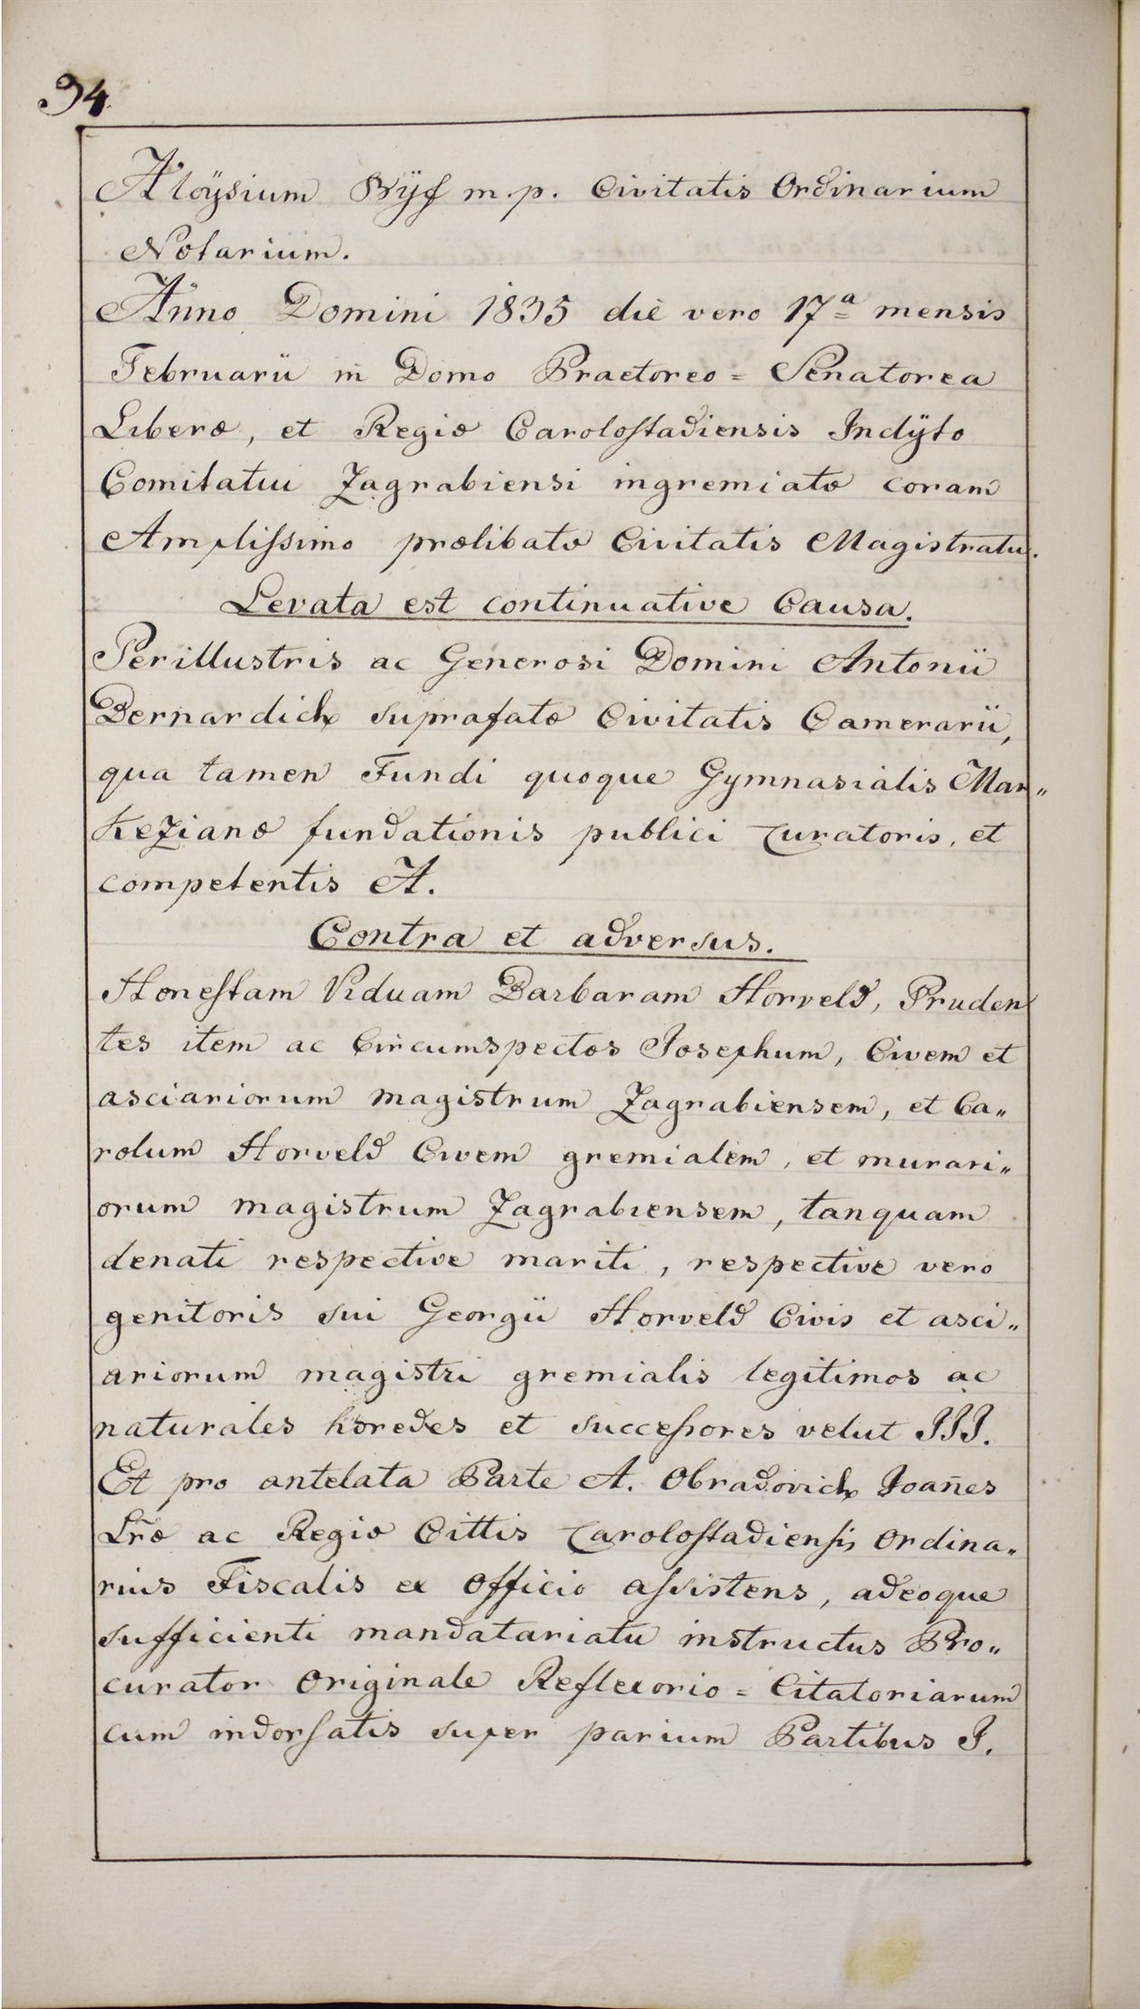 94
Aloÿsium Wÿss m.p. Civitatis Ordinarium
Notarium.
Anno Domini 1835 die vero 17ª mensis
Februarii in Domo Praetoreo = Senatorea
Liberæ, et Regiæ Carolostadiensis Inclÿto
Comitatui Zagrabiensi ingremiatæ coram
Amplissimo prælibatæ Civitatis Magistratu.
Levata est continuative Causa.
Perillustris ac Generosi Domini Antonii
Bernardich suprafatæ Civitatis Camerarii,
qua tamen Fundi quoque Gymnasialis Mar„
kezianæ fundationis publici Curatoris, et
competentis A.
Contra et adversus.
Honestam Viduam Barbaram Horveld, Pruden
tes item ac Circumspectos Josephum, Civem et
asciariorum magistrum Zagrabiensem, et Ca„
rolum Horveld Civem gremialem, et murari„
orum magistrum Zagrabiensem, tanquam
denati respective mariti, respective vero
genitoris sui Georgii Horveld Civis et asci„
ariorum magistri gremialis legitimos ac
naturales hæredes et successores velut III.
Et pro antelata Parte A. Obradovich Joan̄es
Lr̄æ ac Regiæ Cittis Carolostadiensis Ordina„
rius Fiscalis ex Officio assistens, adeoque
sufficienti mandatariatu instructus Pro„
curator Originale Reflexorio = Citatoriarum
cum indorsatis super parium Partibus I.